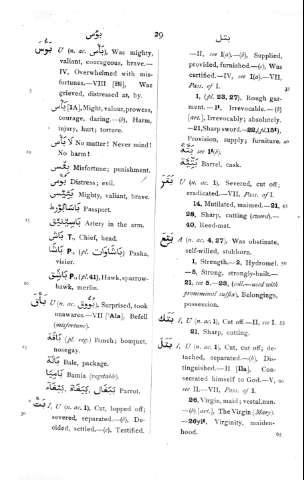 بؤس 29 بتل
بَؤُسَ U (n. ac. بَأْس), Was mighty,
valiant, courageous, brave.—
IV, Overwhelmed with mis-
fortunes.—VIII [28], Was
grieved, distressed at, by.
بَأْس [1A], Might, valour, prowess,
courage, daring.—(b), Harm,
injury, hurt; torture.
لَا بَأْسَ No matter! Never mind!
No harm!
Misfortune; punishment.
بُؤْس Distress; evil.
Mighty, valiant, brave.
Passport.
Artery in the arm.
بَاش T., Chief, head.
بَاشَا P., (pl. بَاشَاوَات) Pasha,
visier.
بَاشِق P., (pl. 41), Hawk, sparrow-
hawk, merlin.
U (n. ac. بُؤُوق), Surprised, took
unawares.—VII ['Ala], Befell
(misfortune).
بَاقَة (pl. reg.) Bunch; bouquet,
nosegay.
بَالَة Bale, package.
بَامِيَا Bamia (vegetable).
Parrot.
بَتَّ I, U (n. ac. 1), Cut, lopped off;
severed, separated.—(b), De-
cided, settled.—(c), Testified.
—II, see I(a).—(b), Supplied,
provided, furnished.—(c), Was
certified.—IV, see I(a).—VII,
Pass. of I.
1, (pl. 23, 27), Rough gar-
ment.—1t, Irrevocable.—(b)
[art.], Irrevocably; absolutely.
—21, Sharp sword.—22 (pl. 15t),
Provision, supply; furniture.
see 1t(b).
Barrel, cask.
بَتَرَ U (n. ac. 1), Severed, cut off;
eradicated.—VII, Pass. of I.
14, Mutilated, maimed.—21,
28, Sharp, cutting (sword).—
40, Reed-mat.
بَتِعَ A (n. ac. 4, 27), Was obstinate,
self-willed, stubborn.
1, Strength.—2, Hydromel.
—5, Strong, strongly-built.—
21, see 5.—28, (coll.—used with
pronominal suffix), Belongings,
possession.
بَتَكَ I, U (n. ac. 1), Cut off.—II, see I.
21, Sharp, cutting.
بَتَلَ I, U (n. ac. 1), Cut, cut off; de-
tached, separated.—(b), Dis-
tinguished.—II [Ila], Con-
secrated himself to God.—V,
see II.—VII, Pass. of I.
26, Virgin, maid; vestal, nun.
—(b) [art.], The Virgin (Mary).
—26yit, Virginity, maiden-
hood.